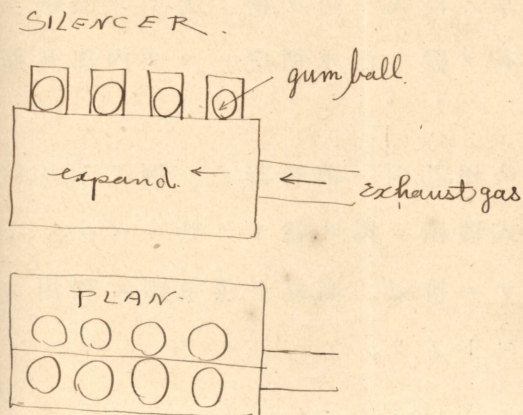 SILENCER.
gum ball.
expand.
Exhaust gas
PLAN.